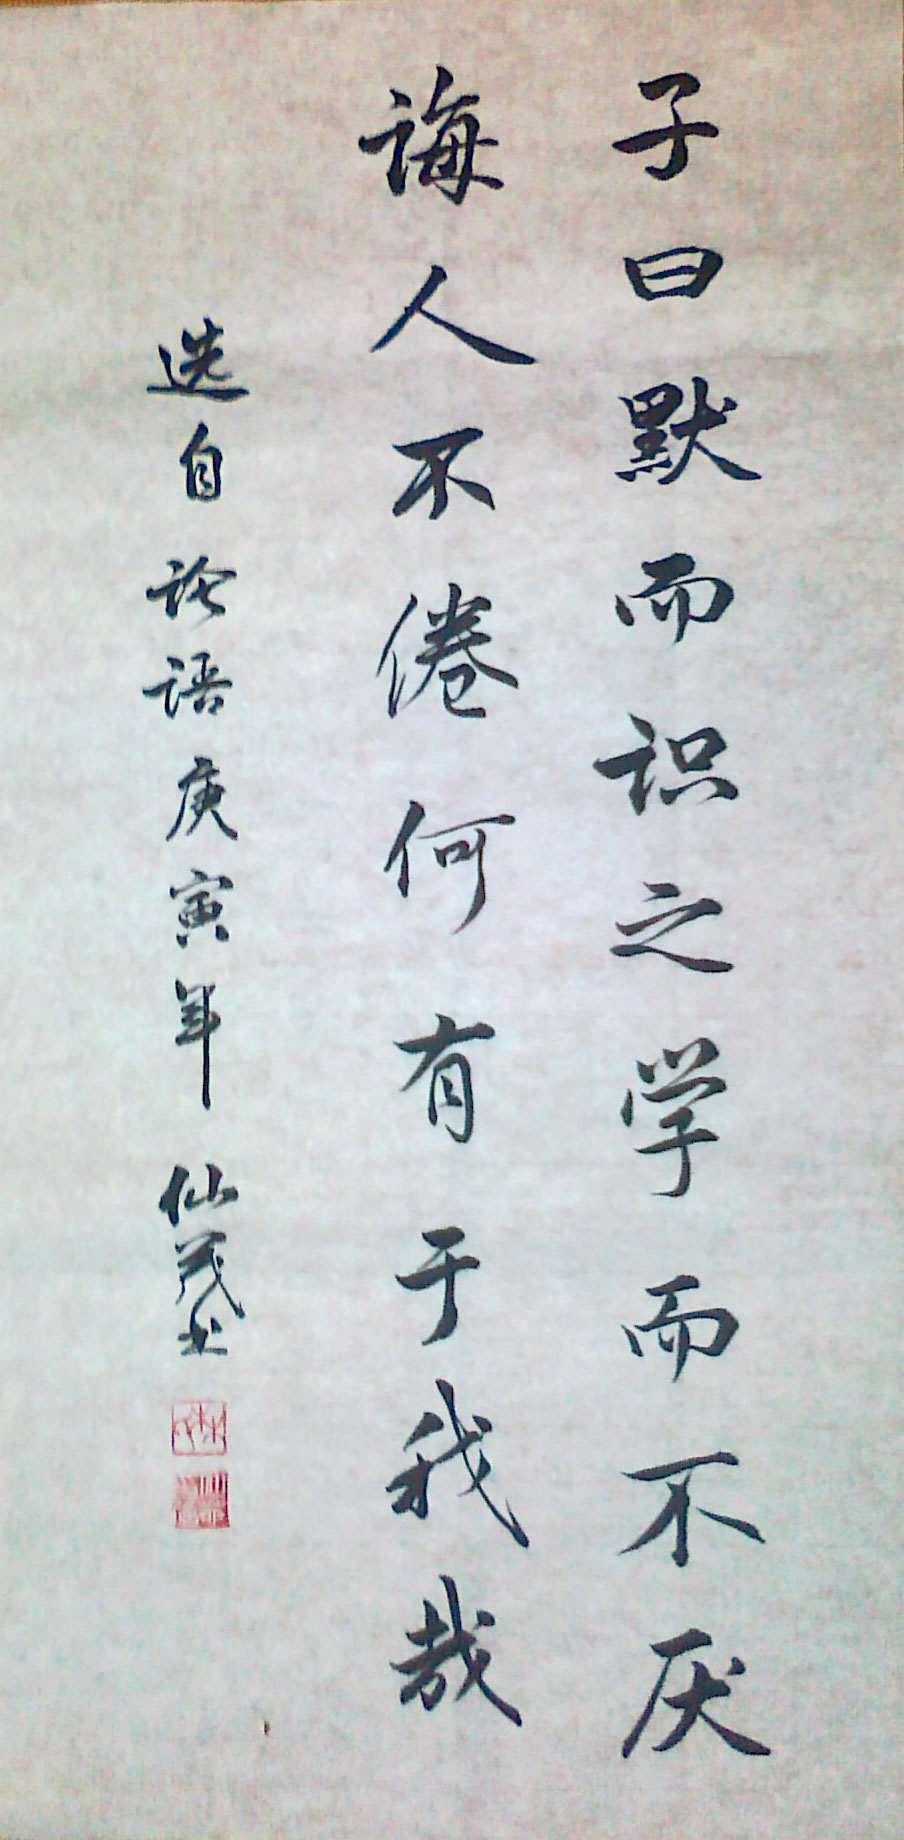 子曰默而识之学而不厌
诲人不倦何有于我哉
选自论语庚寅年 仙茂书